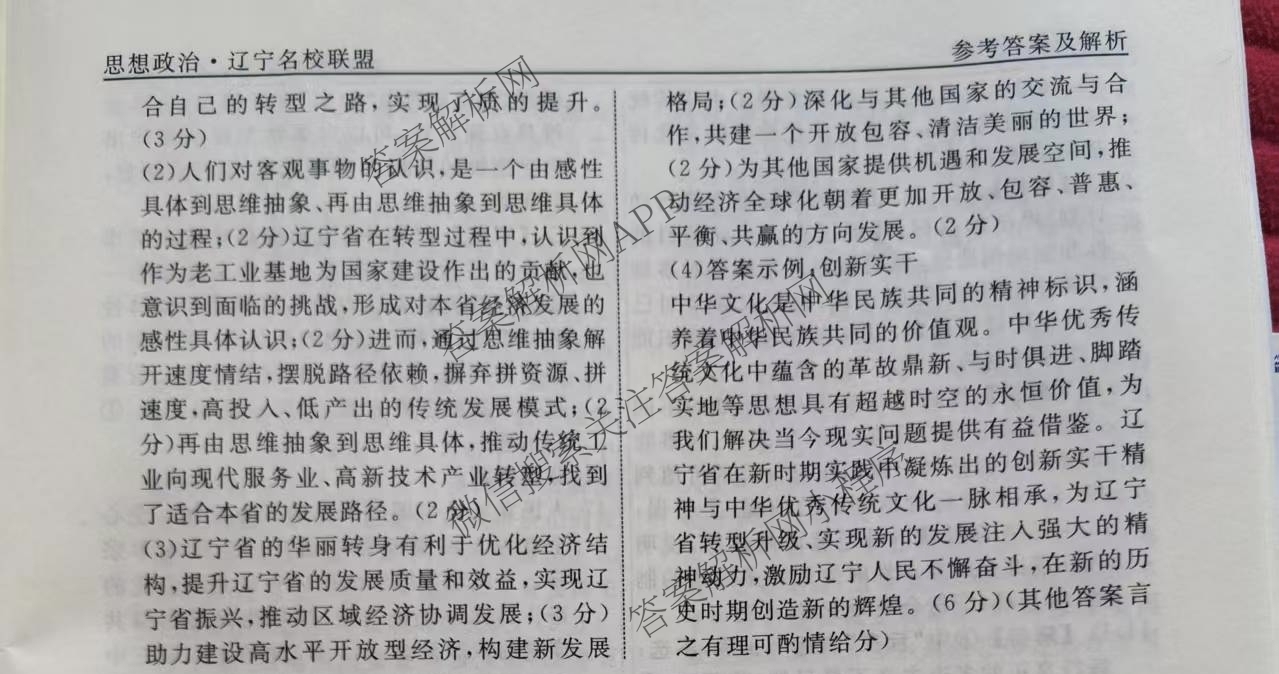 思想政治·辽宁名校联盟
参考答案及解析
合自己的转型之路,实现了质的提升。
(3分)
(2)人们对客观事物的认识,是一个由感性
具体到思维抽象、再由思维抽象到思维具体
的过程;(2分)辽宁省在转型过程中,认识到
作为老工业基地为国家建设作出的贡献,也
意识到面临的挑战,形成对本省经济发展的
感性具体认识;(2分)进而,通过思维抽象解
开速度情结,摆脱路径依赖,摒弃拼资源、拼
速度,高投入、低产出的传统发展模式;(2
分)再由思维抽象到思维具体,推动传统工
业向现代服务业、高新技术产业转型,找到
了适合本省的发展路径。(2分)
(3)辽宁省的华丽转身有利于优化经济结
构,提升辽宁省的发展质量和效益,实现辽
宁省振兴,推动区域经济协调发展;(3分)
助力建设高水平开放型经济,构建新发展
格局;(2分)深化与其他国家的交流与合
作,共建一个开放包容、清洁美丽的世界;
(2分)为其他国家提供机遇和发展空间,推
动经济全球化朝着更加开放、包容、普惠、
平衡、共赢的方向发展。(2分)
(4)答案示例,创新实干
中华文化是中华民族共同的精神标识,涵
养着中华民族共同的价值观。中华优秀传
统文化中蕴含的革故鼎新、与时俱进、脚踏
实地等思想具有超越时空的永恒价值,为
我们解决当今现实问题提供有益借鉴。辽
宁省在新时期实践中凝炼出的创新实干精
神与中华优秀传统文化一脉相承,为辽宁
省转型升级、实现新的发展注入强大的精
神动力,激励辽宁人民不懈奋斗,在新的历
史时期创造新的辉煌。(6分)(其他答案言
之有理可酌情给分)
答案解析网
答案解析网APP
微信搜索关注答案解析网
答案解析网小程序